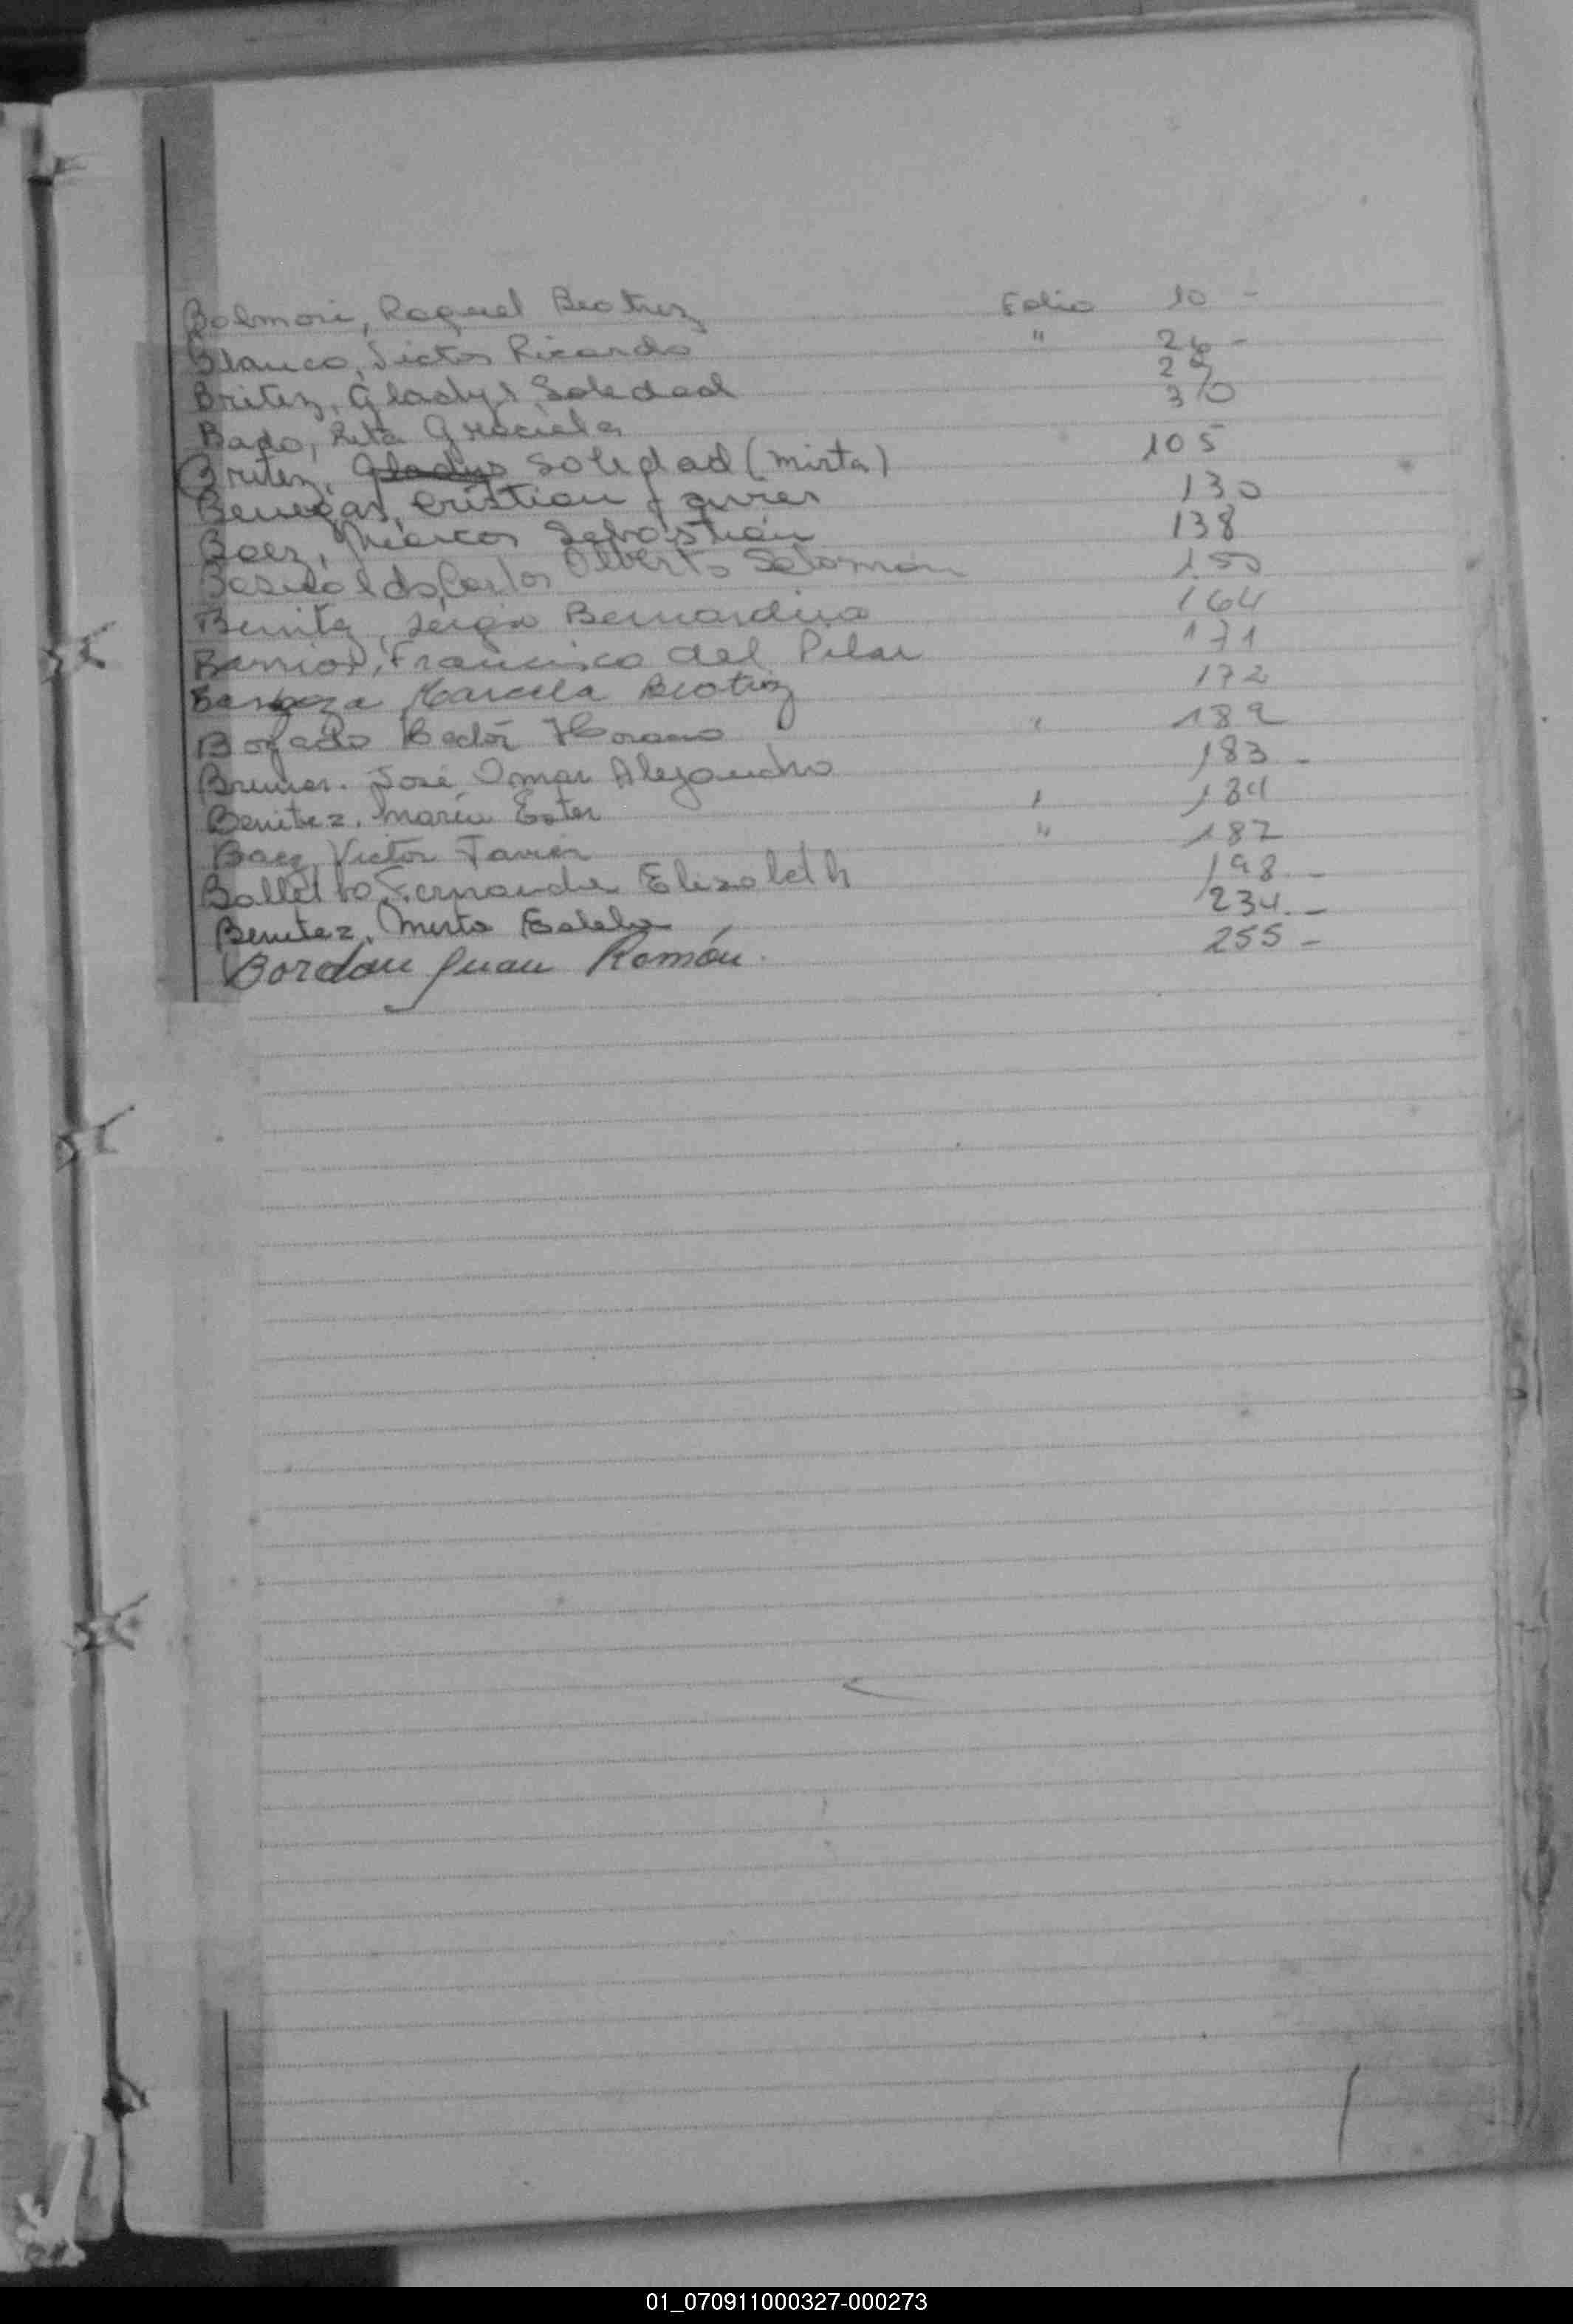 Balmori, Raquel Beatriz Folio 10 -
Blanco, Victor Ricardo " 26 -
Britez, Gladys Soledad 29
Bado, Rita Graciela 30
Britez, Gladys Soledad (Mirta) 105
Benegas, Cristian Javier 130
Baez, Marcos Sebastián 138
Basualdo, Carlos Alberto Salomón 150
Benitez, Sergio Bernardino 164
Barrios, Francisco del Pilar 171
Barboza Marcela Beatriz 172
Bogado Hector Horacio " 182
Bruner. José Omar Alejandro 183 -
Benitez. María Ester " 184
Baez, Victor Javier " 187
Balletbo, Fernanda Elizabeth 198 -
Benitez, Mirta 234 -
Bordon Juan Ramón. 255 -
01_070911000327-000273